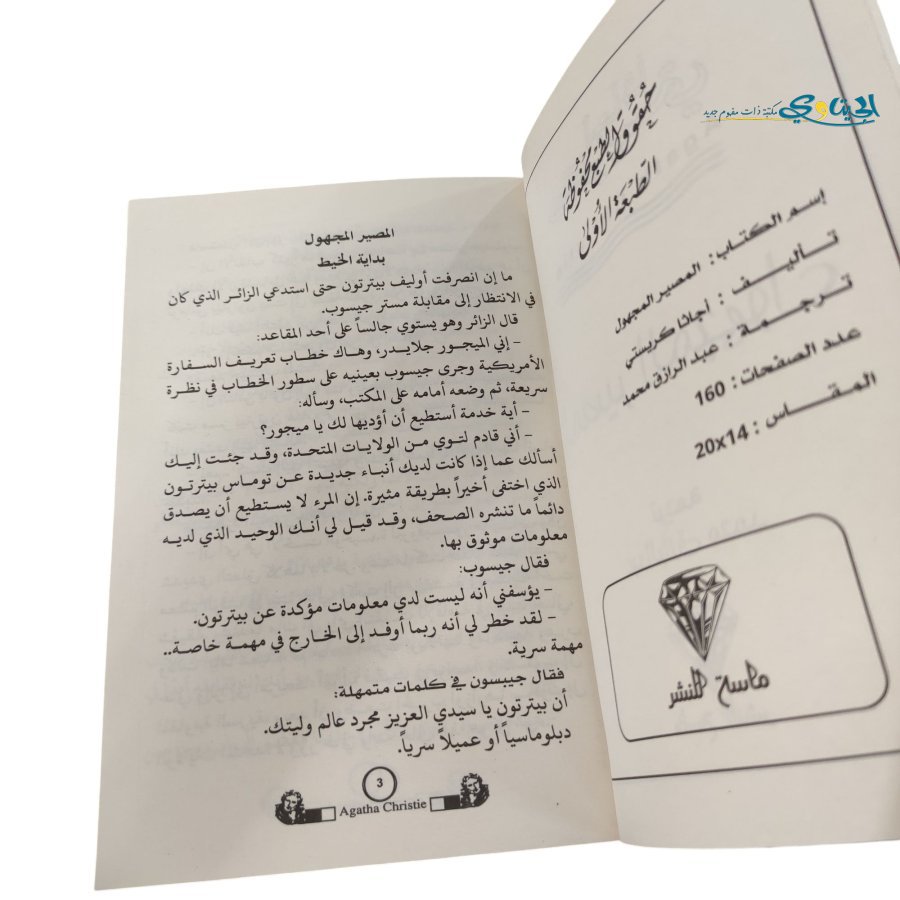 الحيتاوي مكتبة ذات مفهوم جديد
حُقُوق الطبع محفُوظة
الطبعة الأولى
إسم الكتاب: المصير المجهول
تأليف: أجاثا كريستي
ترجمة: عبد الرازق محمد
عدد الصفحات: 160
المقاس: 20x14
ماسة للنشر
المصير المجهول
بداية الخيط
ما إن انصرفت أوليف بيترتون حتى استدعي الزائر الذي كان
في الانتظار إلى مقابلة مستر جيسوب.
قال الزائر وهو يستوي جالساً على أحد المقاعد:
- إني الميجور جلايدر، وهاك خطاب تعريف السفارة
الأمريكية وجرى جيسوب بعينيه على سطور الخطاب في نظرة
سريعة، ثم وضعه أمامه على المكتب، وسأله:
- أية خدمة أستطيع أن أؤديها لك يا ميجور؟
- أني قادم لتوي من الولايات المتحدة، وقد جئت إليك
أسألك عما إذا كانت لديك أنباء جديدة عن توماس بيترتون
الذي اختفى أخيراً بطريقة مثيرة. إن المرء لا يستطيع أن يصدق
دائماً ما تنشره الصحف، وقد قيل لي أنك الوحيد الذي لديه
معلومات موثوق بها.
فقال جيسوب:
- يؤسفني أنه ليست لدي معلومات مؤكدة عن بيترتون.
- لقد خطر لي أنه ربما أوفد إلى الخارج في مهمة خاصة..
مهمة سرية.
فقال جيبسون في كلمات متمهلة:
أن بيترتون يا سيدي العزيز مجرد عالم وليتك.
دبلوماسياً أو عميلاً سرياً.
3
Agatha Christie